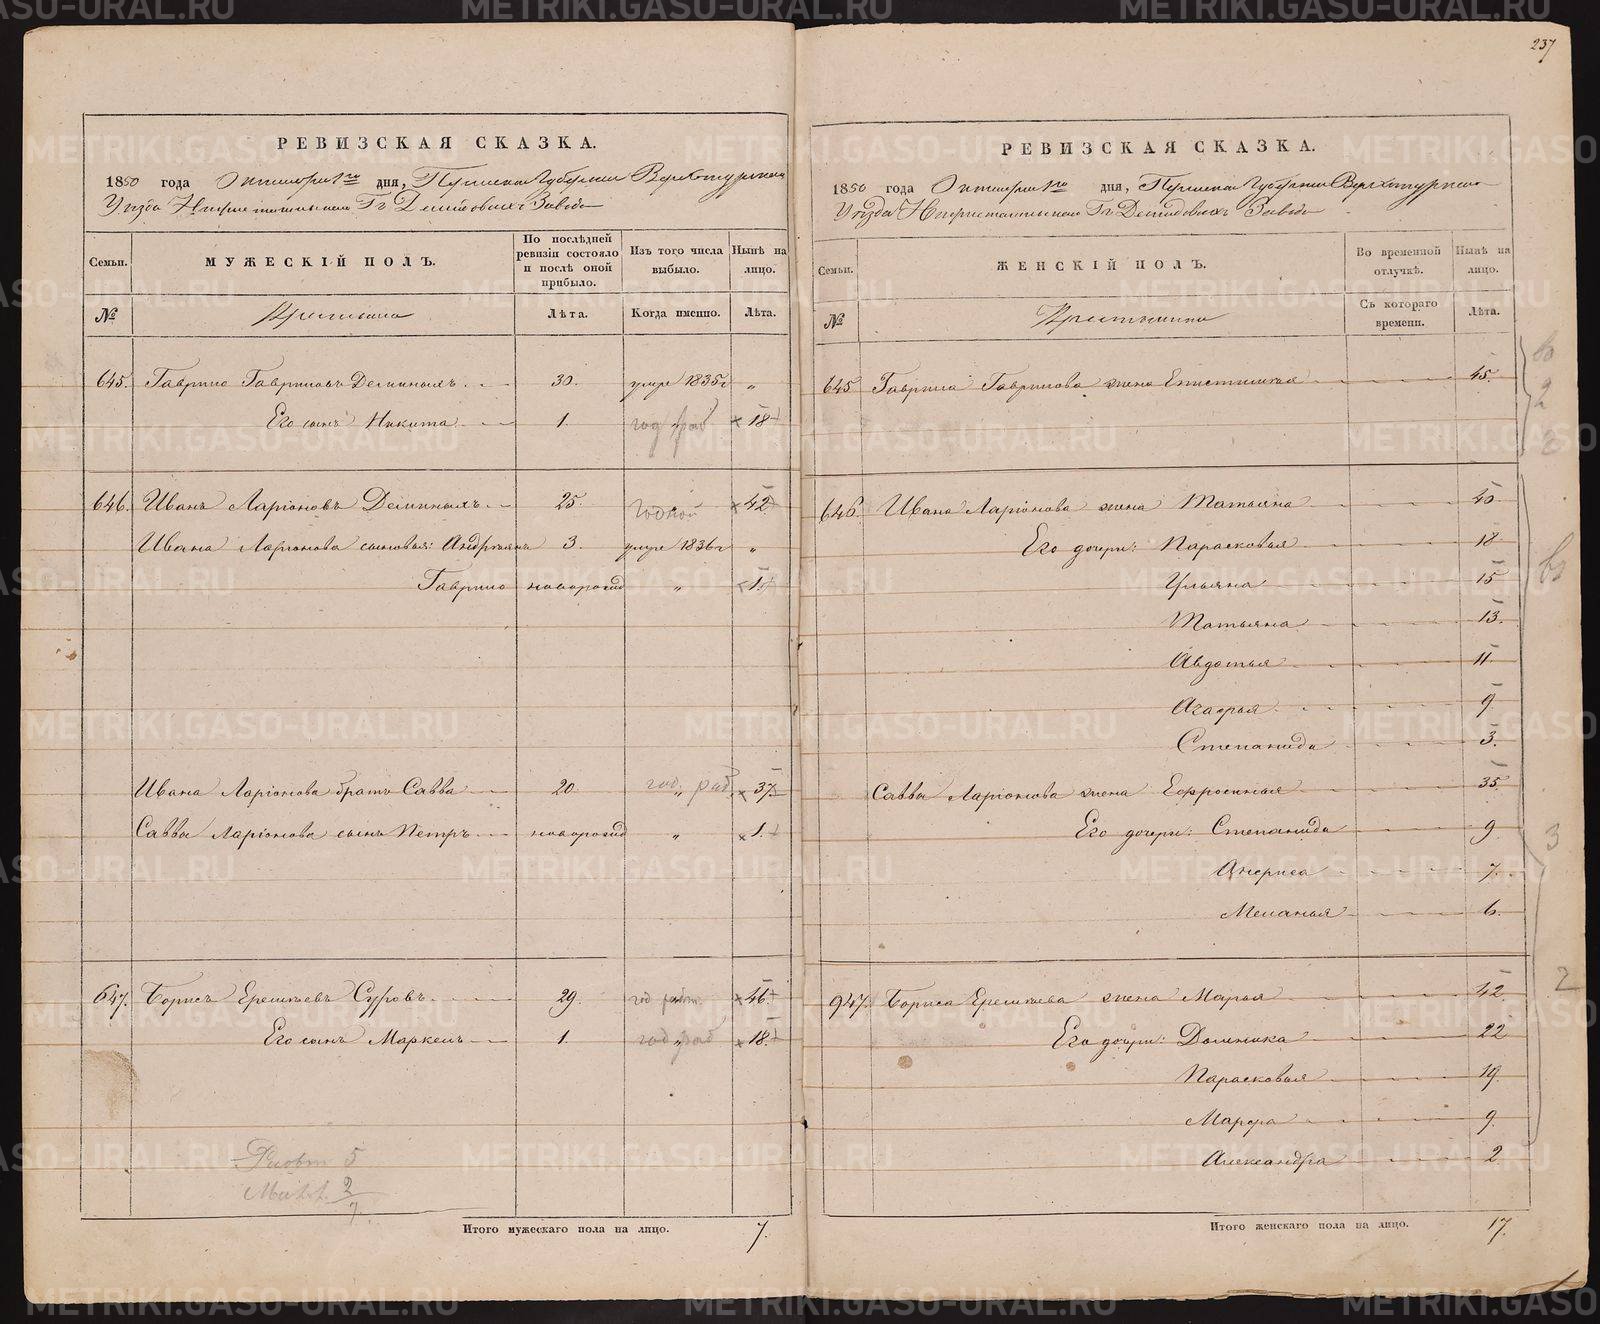 237
РЕВИЗСКАЯ СКАЗКА.
1850 года Октября 1го дня, Пермской Губернии Верхотурскаго
Уѣзда Нижнетагильскаго Гг. Демидовыхъ Завода
Семьи. МУЖЕСКІЙ ПОЛЪ. По послѣдней ревизіи состояло и послѣ оной прибыло. Изъ того числа выбыло. Нынѣ на лицо.
№ Крестьяне Лѣта. Когда именно. Лѣта.
645. Гаврило Гавриловъ Деминыхъ 30. умре 1835г "
Его сынъ Никита 1. год раб 18
646. Иванъ Ларіоновъ Деминыхъ 25. годной 42
Ивана Ларіонова сыновья: Андреянъ 3. умре 1836г "
Гаврило новорожд " 1
Ивана Ларіонова братъ Савва 20 год. раб. 37
Саввы Ларіонова сынъ Петръ новорожд " 1.
647. Борисъ Еремѣевъ Суровъ 29. год работ. 46
Его сынъ Маркелъ 1. год раб 18.
5
2
7.
Итого мужескаго пола на лицо. 7.
РЕВИЗСКАЯ СКАЗКА.
1850 года Октября 1го дня, Пермской Губернии Верхотурскаго
Уѣзда Нижнетагильскаго Гг. Демидовыхъ Завода
Семьи. ЖЕНСКІЙ ПОЛЪ. Во временной отлучкѣ. Нынѣ на лицо.
№ Крестьянки Съ котораго времени. Лѣта.
645 Гаврила Гаврилова жена Епистимья 45.
646. Ивана Ларіонова жена Татьяна 40.
Его дочери: Парасковья 18
Ульяна 15
Татьяна 13.
Авдотья 11.
Агафья 9.
Степанида 3.
Саввы Ларіонова жена Ефросинья 35.
Его дочери: Степанида 9
Анфиса 7.
Меланья 6.
947. Бориса Еремѣева жена Марья 42.
Его дочери: Домника 22
Парасковья 19.
Марфа 9.
Александра 2
3
2
Итого женскаго пола на лицо. 17.
METRIKI.GASO-URAL.RU